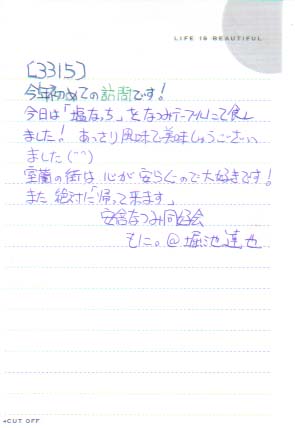 LIFE IS BEAUTIFUL
[3315]
今年初めての訪問です!
今日は「塩なっち」をなつみテーブルにて食し
ました! あっさり風味で美味しゅうござい
ました(^^)
室蘭の街は心が安らぐので大好きです!
また絶対に「帰って来ます」
安倍なつみ同好会
もに。@堀池達也
◂CUT OFF